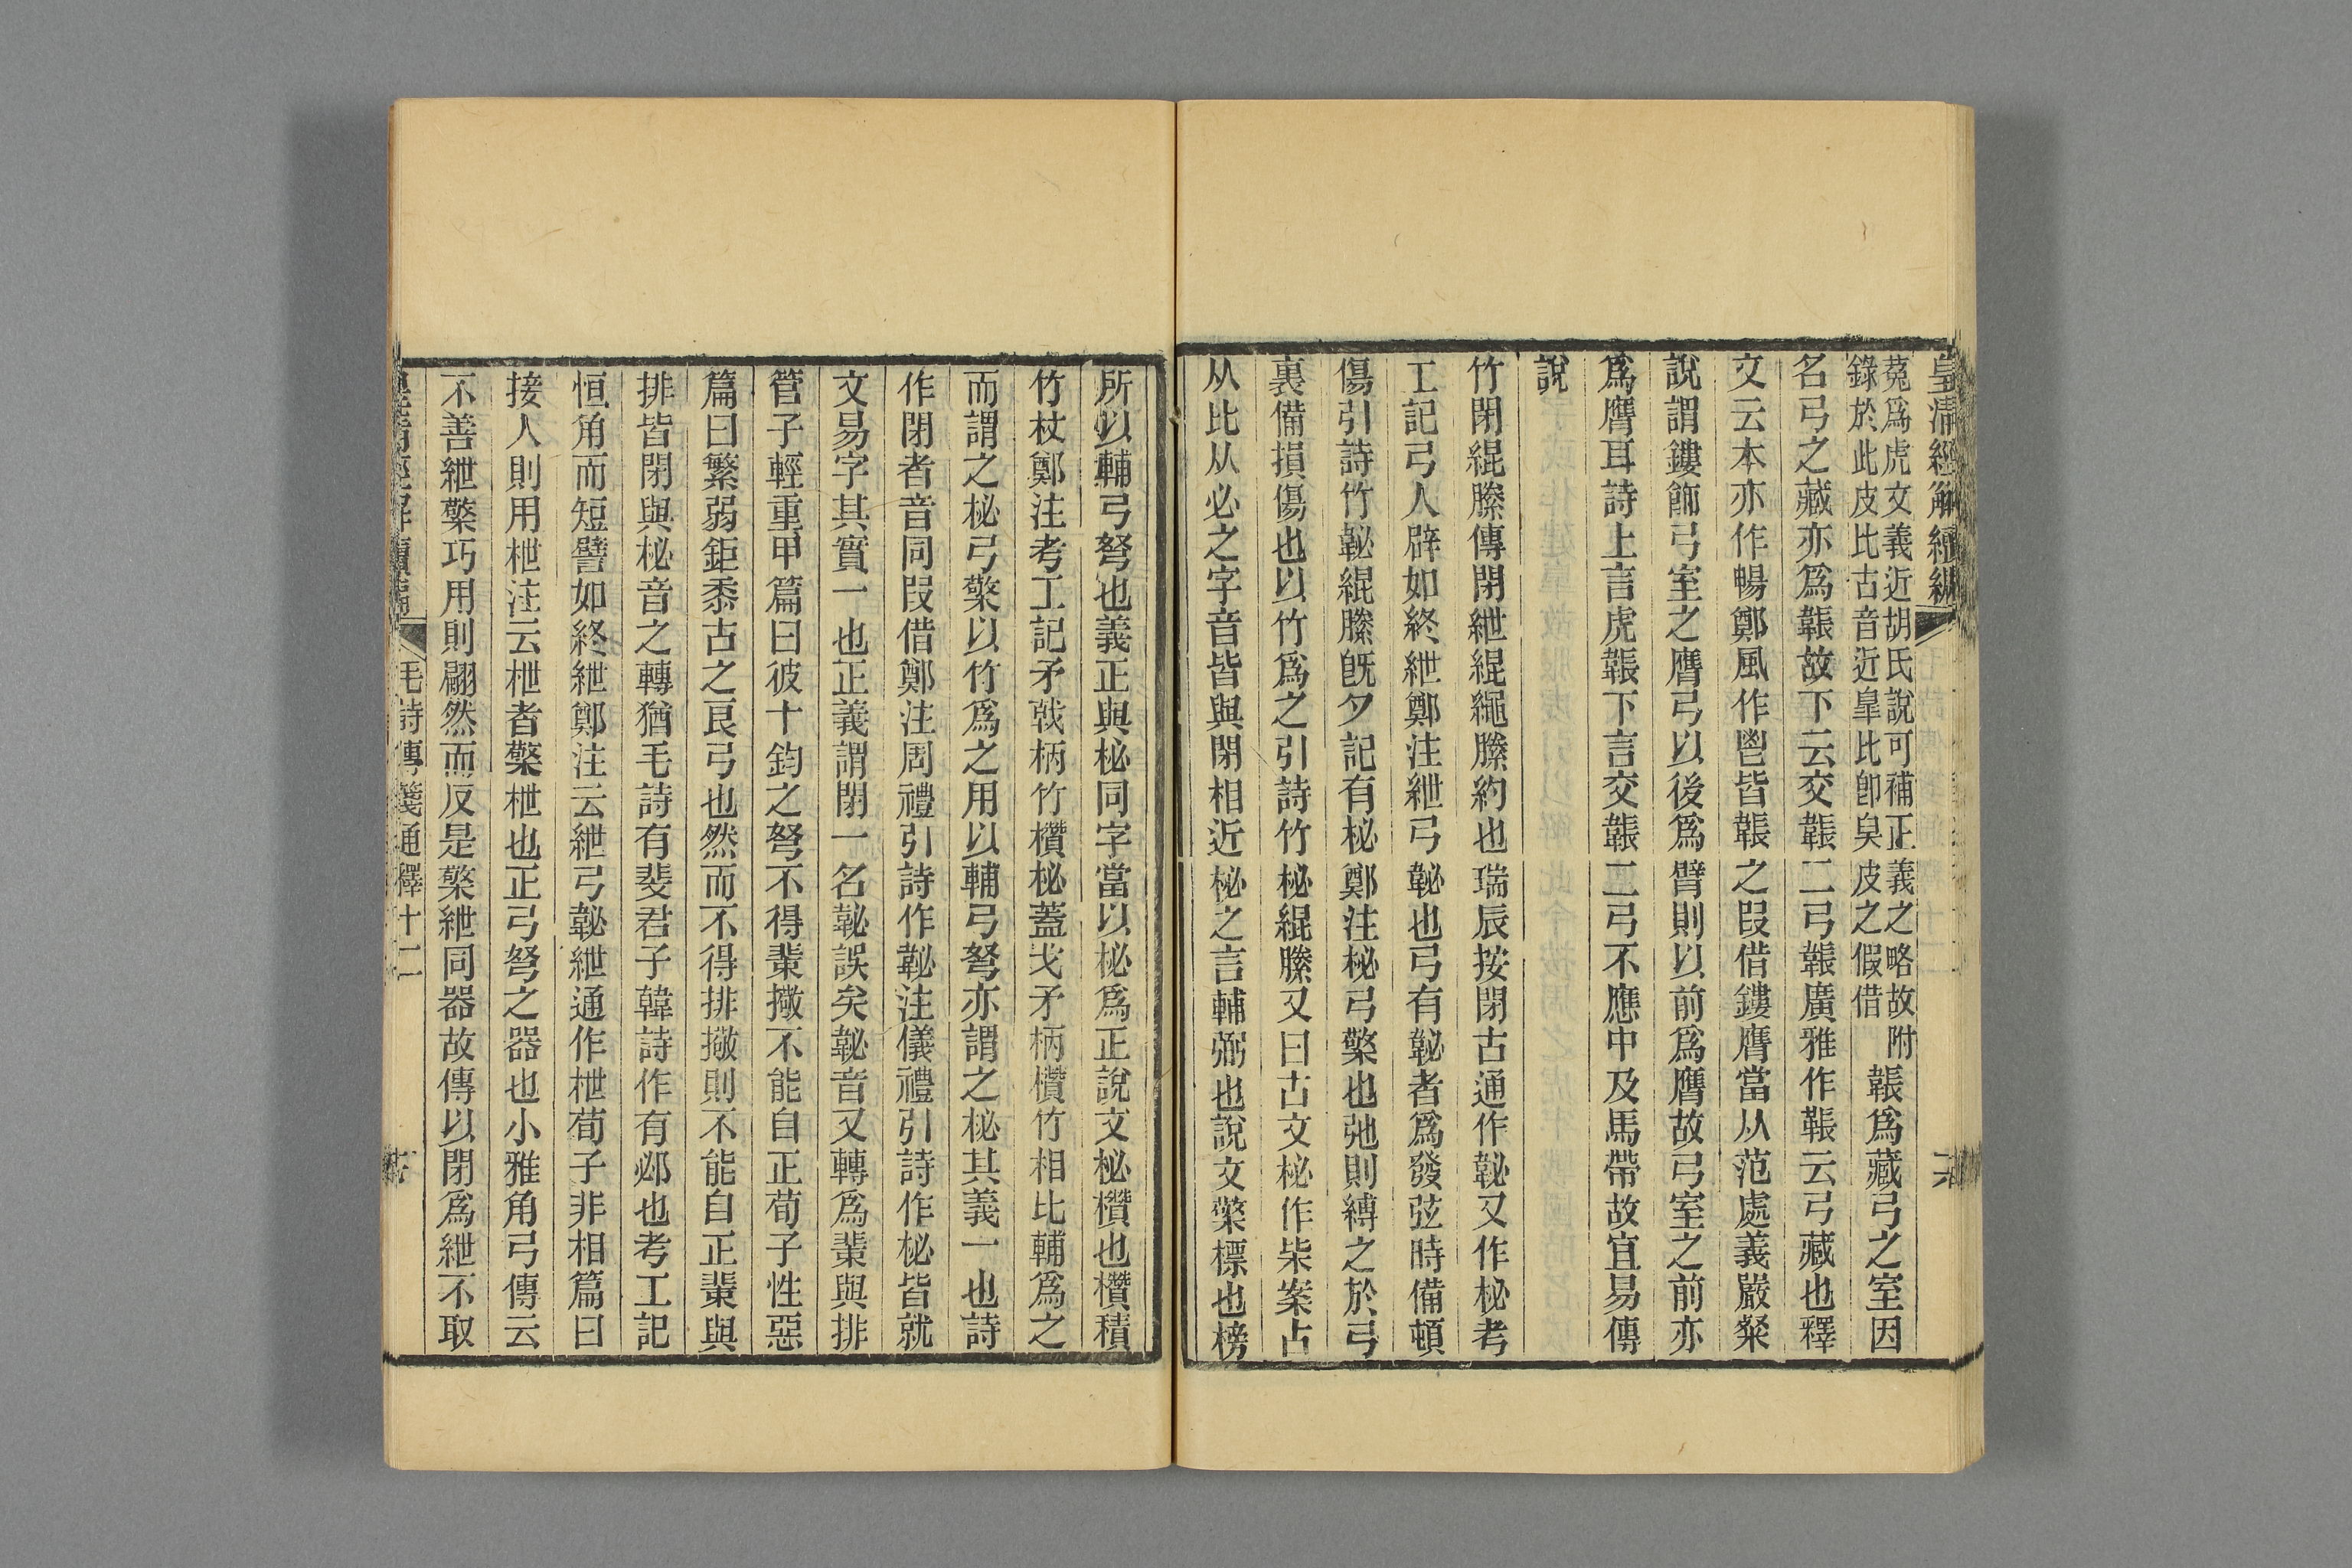 皇清經解續編
菟爲虎文義近胡氏說可補正義之略故附
錄於此皮比古音近臯比卽臯皮之假借
韔爲藏弓之室因
名弓之藏亦爲韔故下云交韔二弓韔廣雅作韔云弓藏也釋
文云本亦作暢鄭風作鬯皆韔之叚借鏤膺當从范處義嚴粲
說謂鏤飾弓室之膺弓以後爲臂則以前爲膺故弓室之前亦
爲膺耳詩上言虎韔下言交韔二弓不應中及馬帶故宜易傳
說
竹閉緄縢傳閉紲緄繩縢約也瑞辰按閉古通作䪐又作柲考
工記弓人辟如終紲鄭注紲弓䪐也弓有䪐者爲發弦時備頓
傷引詩竹䪐緄縢旣夕記有柲鄭注柲弓檠也弛則縛之於弓
裏備損傷也以竹爲之引詩竹柲緄縢又曰古文柲作枈案古
从比从必之字音皆與閉相近柲之言輔弼也說文檠榜也榜
所以輔弓弩也義正與柲同字當以柲爲正說文柲欑也欑積
竹杖鄭注考工記矛戟柄竹欑柲蓋戈矛柄欑竹相比輔爲之
而謂之柲弓檠以竹爲之用以輔弓弩亦謂之柲其義一也詩
作閉者音同叚借鄭注周禮引詩作䪐注儀禮引詩作柲皆就
文易字其實一也正義謂閉一名䪐誤矣䪐音又轉爲棐與排
管子輕重甲篇曰彼十鈞之弩不得棐擏不能自正荀子性惡
篇曰繁弱鉅黍古之良弓也然而不得排擏則不能自正棐與
排皆閉與柲音之轉猶毛詩有斐君子韓詩作有邲也考工記
恒角而短譬如終紲鄭注云紲弓䪐紲通作枻荀子非相篇曰
接人則用枻注云枻者檠枻也正弓弩之器也小雅角弓傳云
不善紲檠巧用則翩然而反是檠紲同器故傳以閉爲紲不取
皇清經解續編 毛詩傳箋通釋十二